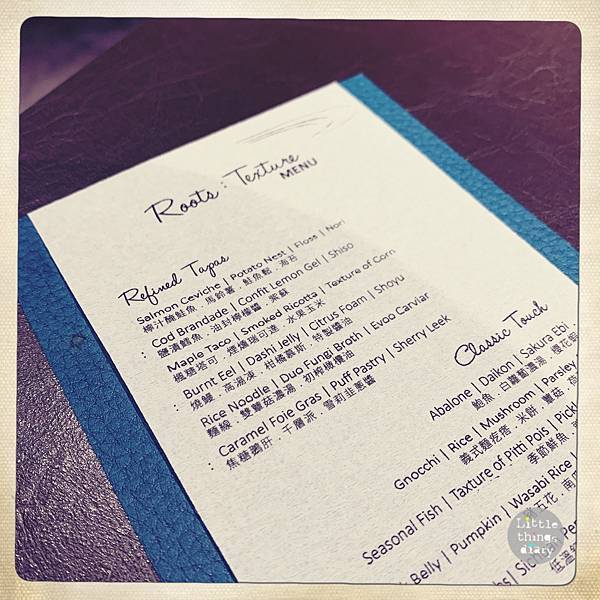 Roots : Texture
MENU
Refined Tapas
Salmon Ceviche | Potato Nest | Floss | Nori
檸汁醃鮭魚．馬鈴薯．鮭魚鬆．海苔
Cod Brandade | Confit Lemon Gel | Shiso
鹽漬鱈魚．油封檸檬醬．紫蘇
Maple Taco | Smoked Ricotta | Texture of Corn
楓糖塔可．煙燻瑞可達．水果玉米
Burnt Eel | Dashi Jelly | Citrus Foam | Shoyu
燒鰻．高湯凍．柑橘慕斯．特製醬油
Rice Noodle | Duo Fungi Broth | Evoo Carviar
麵線．雙蕈菇濃湯．初榨橄欖油
Caramel Foie Gras | Puff Pastry | Sherry Leek
焦糖鵝肝．千層派．雪莉韭蔥醬
Classic Touch
Abalone | Daikon | Sakura Ebi
鮑魚．白蘿蔔濃湯．櫻花
Gnocchi | Rice | Mushroom | Parsley
義式麵疙瘩．米餅．蘑菇．
Seasonal Fish | Texture of Pitti Pois | Pick
季節鮮魚．
Belly | Pumpkin | Wasabi Rice |
五花．南
低溫
Little
things
diary